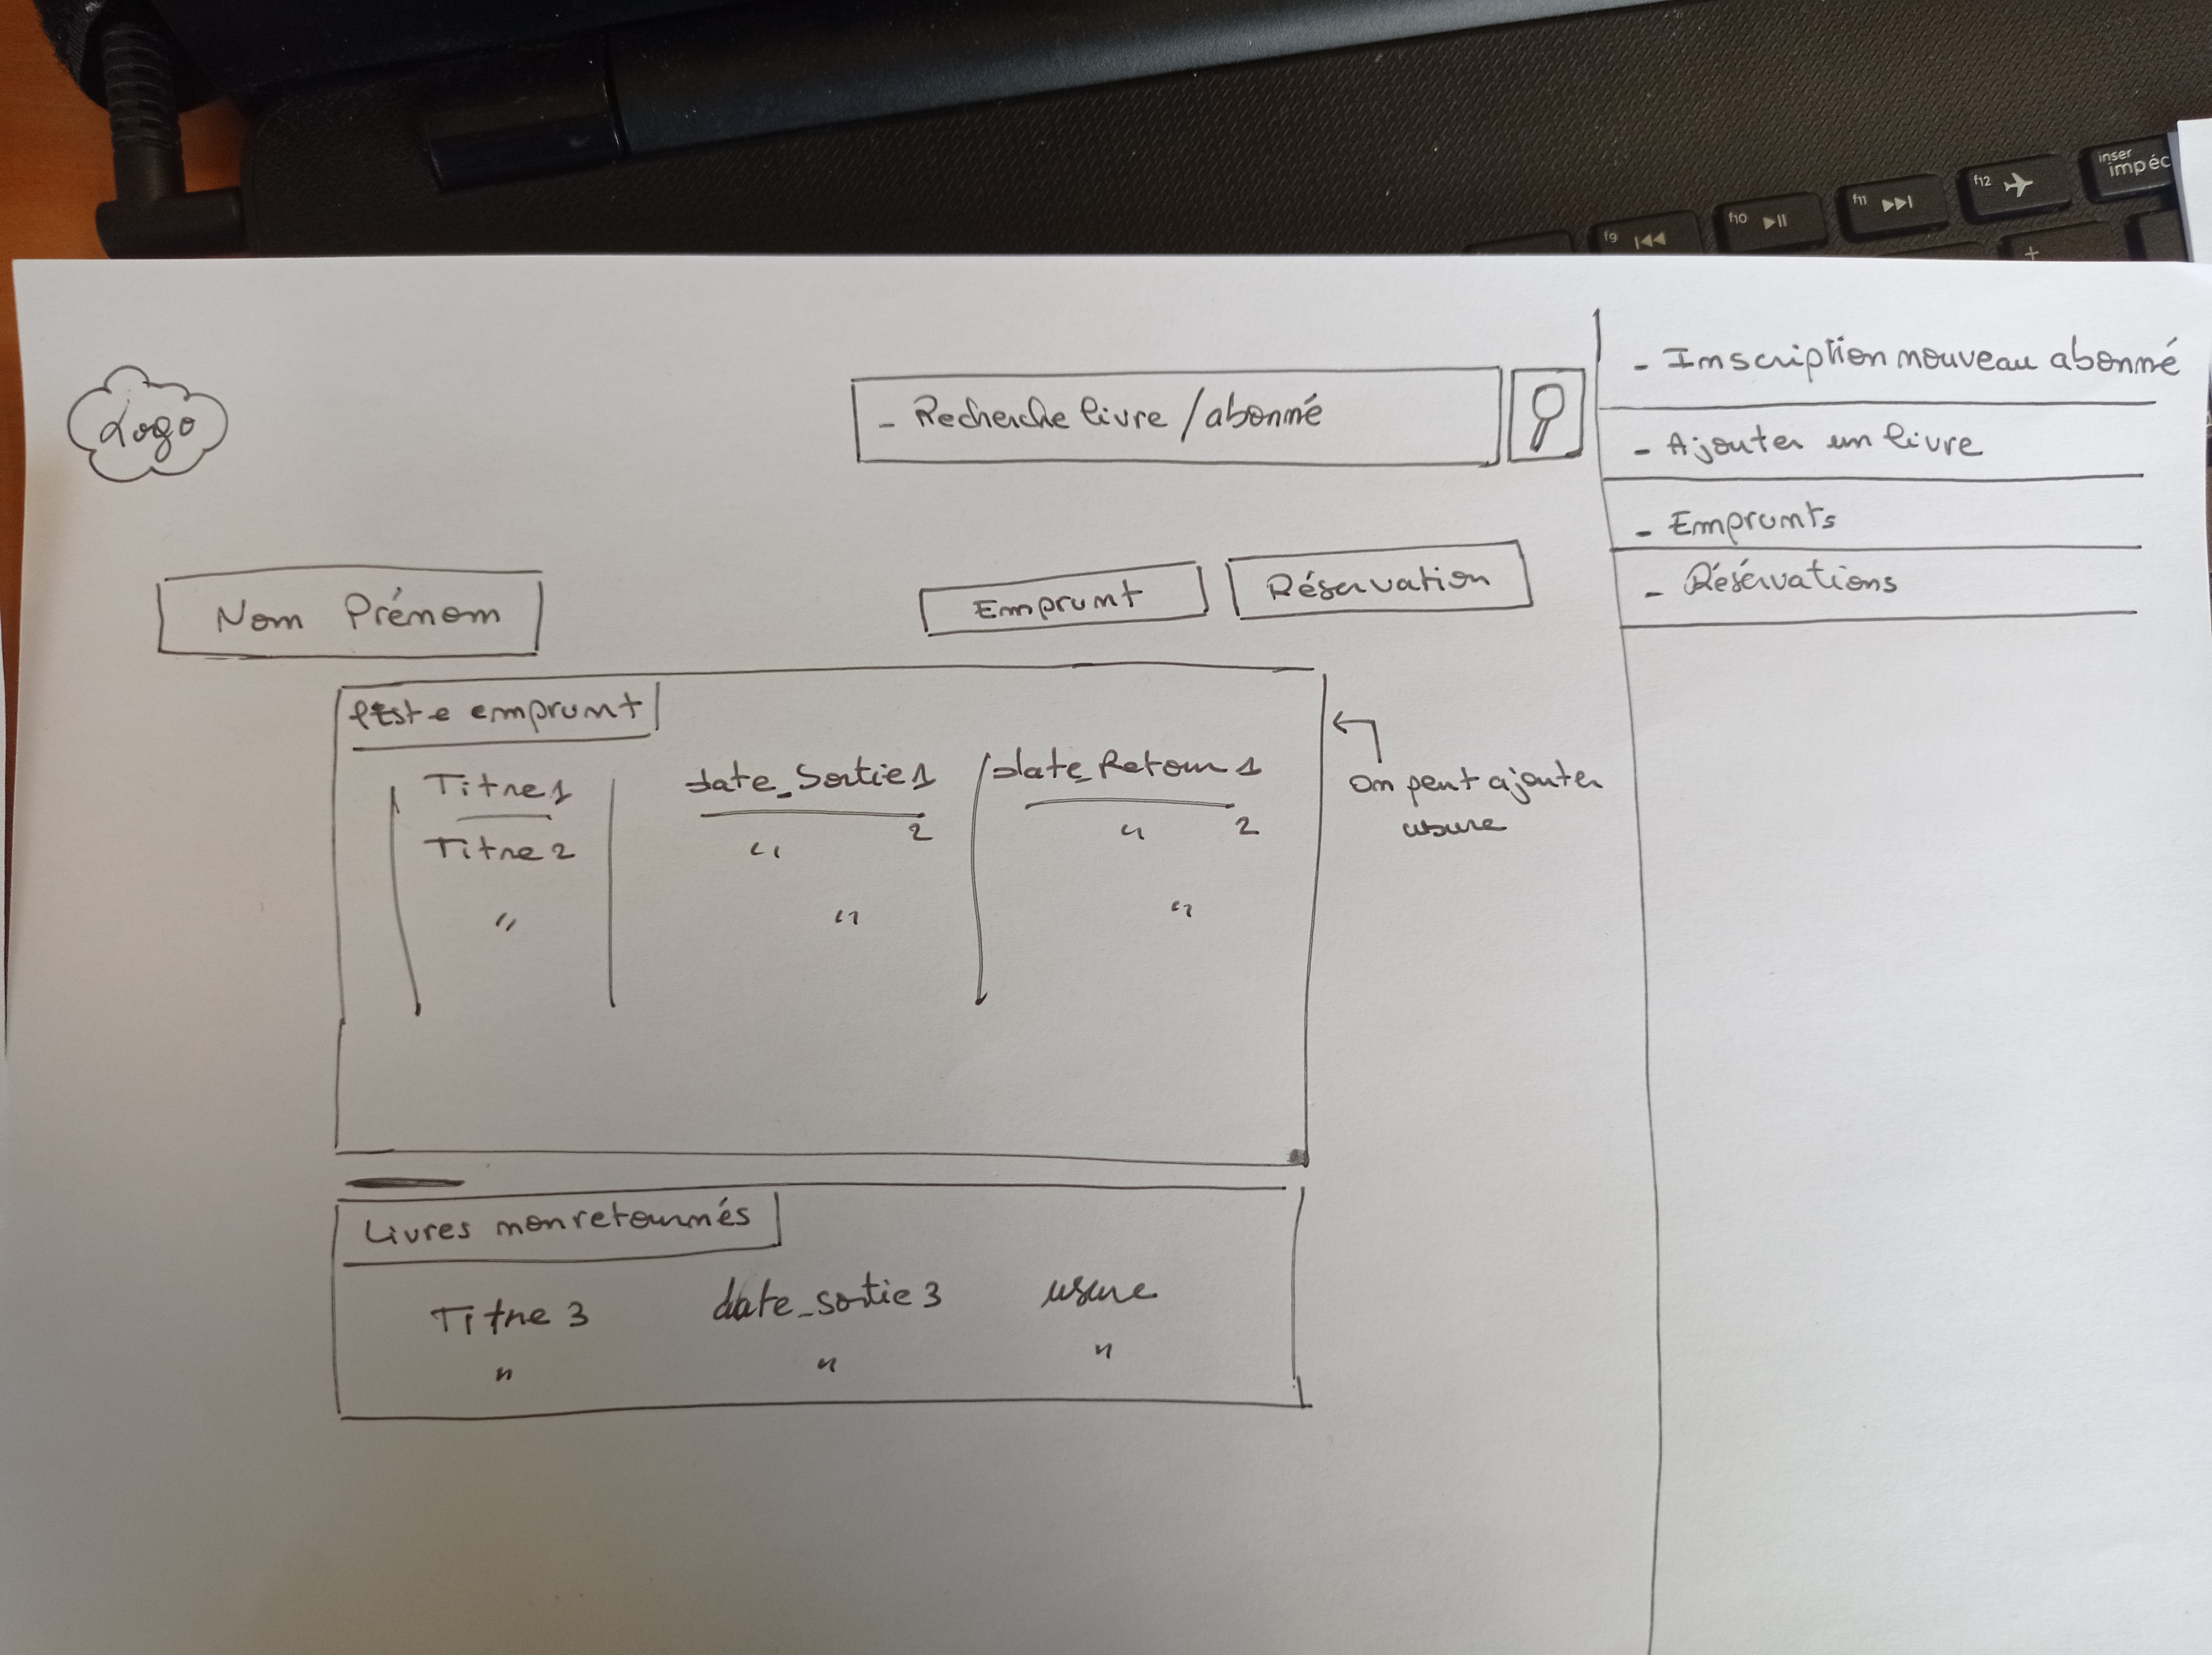 inser
impéc
f12
f11
f10
f9
+
Logo
- Recherche livre / abonné
- Inscription nouveau abonné
- Ajouter un livre
- Emprunts
- Réservations
Nom Prénom
Emprunt
Réservation
liste emprunt
Titre 1 date_Sortie 1 date_Retour 1
Titre 2 " 2 " 2
" " "
on peut ajouter
usure
Livres non retournés
Titre 3 date_sortie 3 usure
" " "